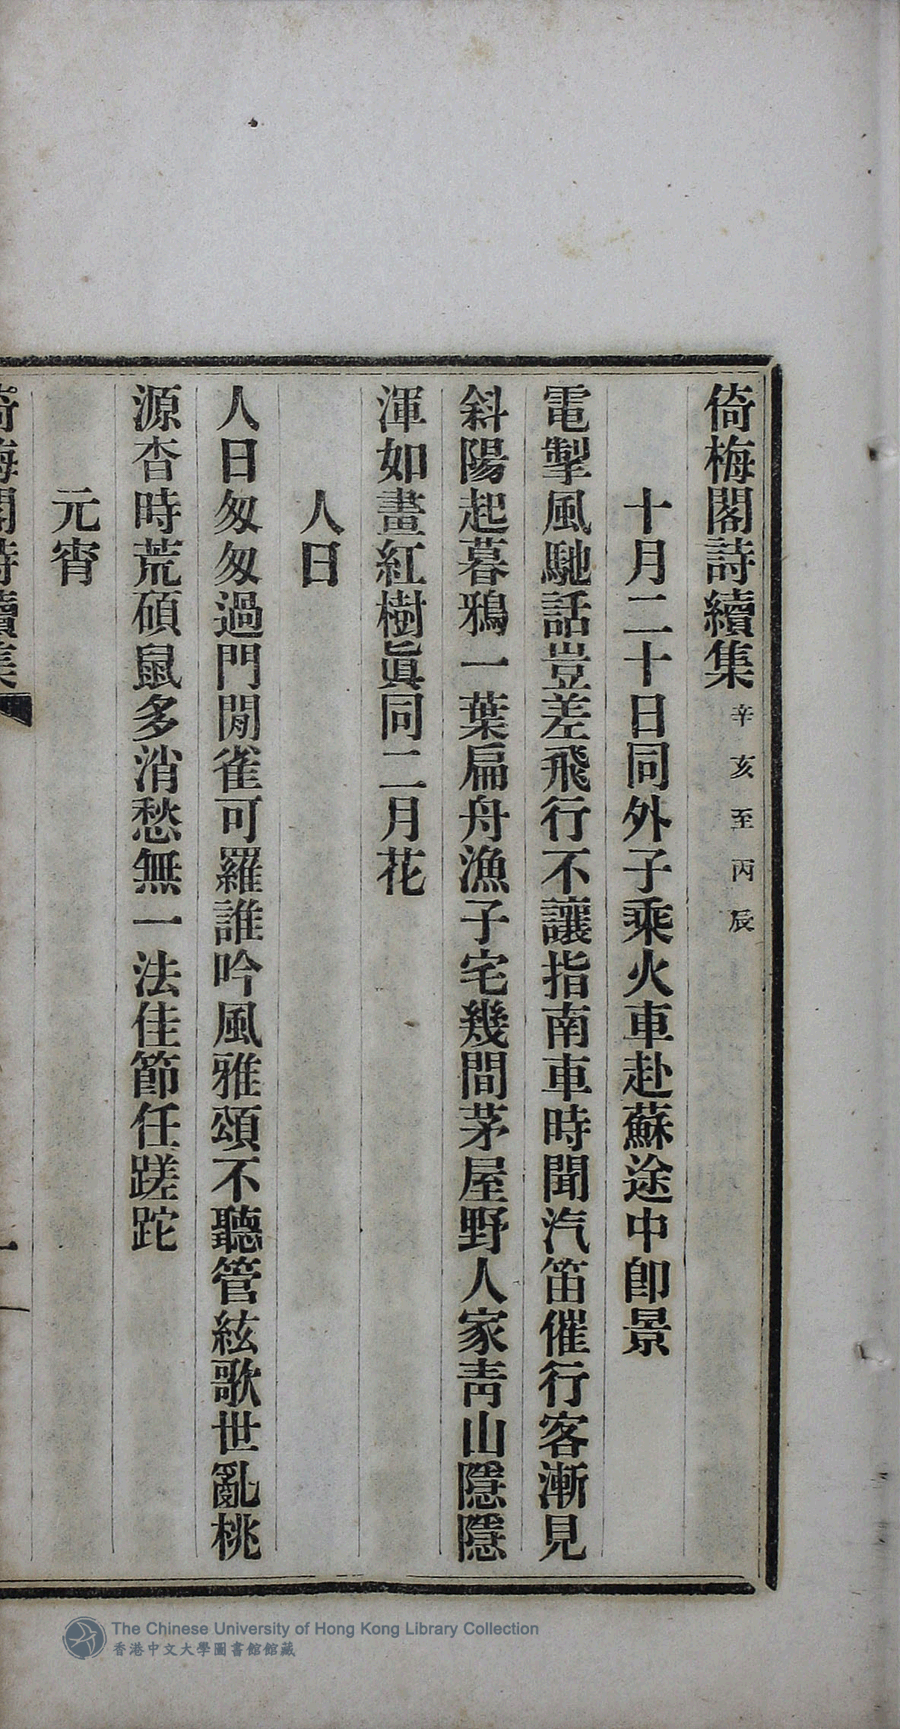 倚梅閣詩續集 辛亥至丙辰
十月二十日同外子乘火車赴蘇途中卽景
電掣風馳話豈差飛行不讓指南車時聞汽笛催行客漸見
斜陽起暮鴉一葉扁舟漁子宅幾間茅屋野人家靑山隱隱
渾如畫紅樹眞同二月花
人日
人日匆匆過門閒雀可羅誰吟風雅頌不聽管絃歌世亂桃
源杳時荒碩鼠多消愁無一法佳節任蹉跎
元宵
倚梅閣詩續集
一
The Chinese University of Hong Kong Library Collection
香港中文大學圖書館館藏